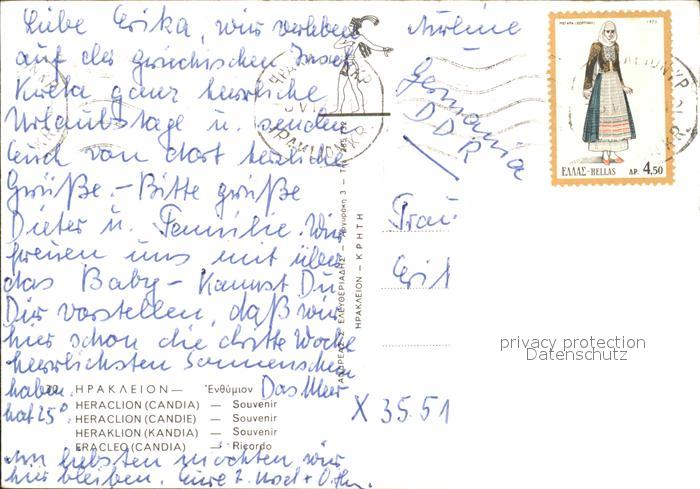 Liebe Erika, wir verleben
auf der griechischen Insel
Kreta ganz herrliche
Urlaubstage u. senden
Euch von dort herzliche
Grüße. - Bitte grüße
Dieter u. Familie. Wir
freuen uns mit über
das Baby - Kannst Du
Dir vorstellen, daß wir
hier schon die dritte Woche
herrlichsten Sonnenschein
haben. Das Meer
hat 25°.
Am liebsten möchten wir
hier bleiben. Eure
20 ΗΡΑΚΛΕΙΟΝ — Ἐνθύμιον
HERACLION (CANDIA) — Souvenir
HERACLION (CANDIE) — Souvenir
HERAKLION (KANDIA) — Souvenir
ERACLEO (CANDIA) — Ricordo
ΑΝΔΡΕΑΣ ΕΛΕΥΘΕΡΙΑΔΗΣ
ΗΡΑΚΛΕΙΟΝ — ΚΡΗΤΗ
Airline
Germania
DDR
Frau
Erik
X 3551
1973
ΕΛΛΑΣ-HELLAS ΔΡ. 4,50
privacy protection
Datenschutz